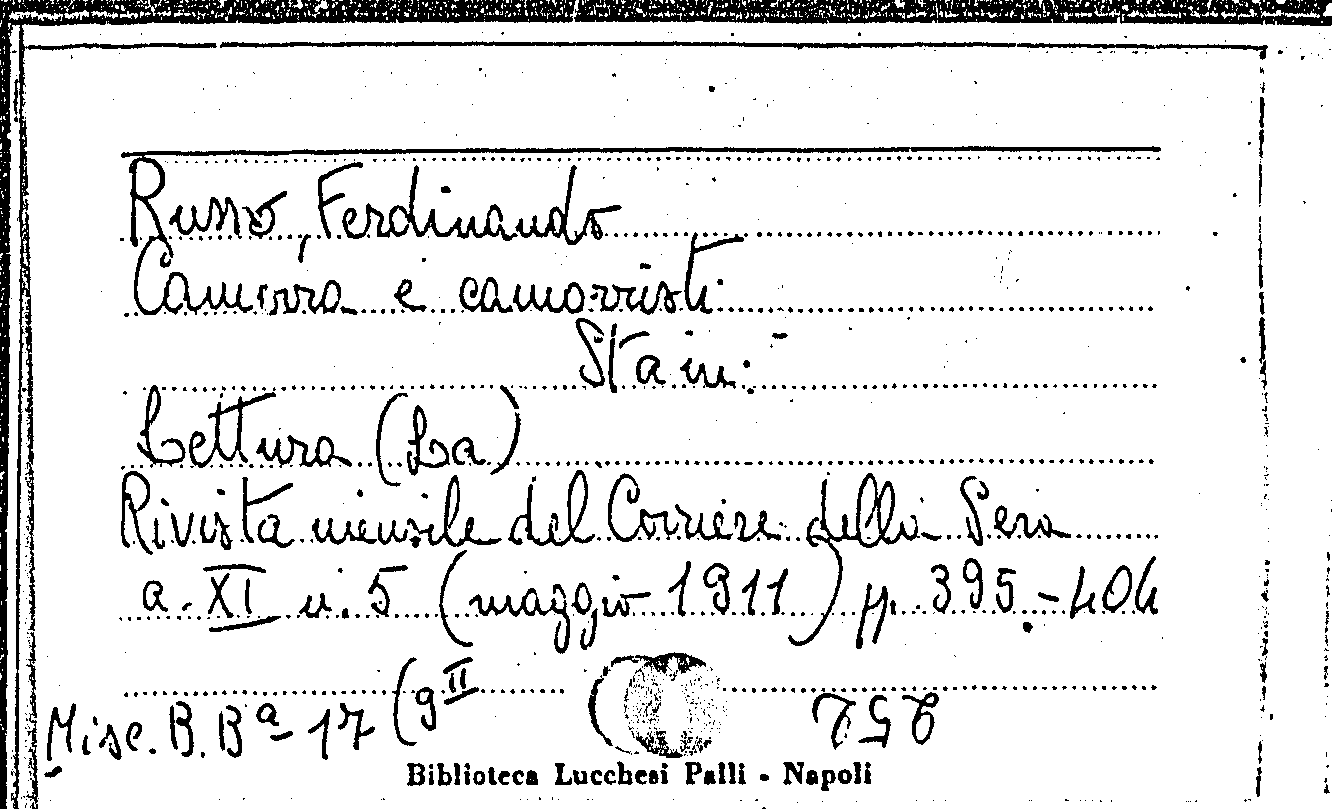 Russo, Ferdinando
Camorra e camorristi
Sta in:
Lettura (La)
Rivista mensile del Corriere della Sera
a. XI n. 5 (maggio 1911) pp. 395-404
Misc. B. Bª 17 (9 II
Biblioteca Lucchesi Palli - Napoli